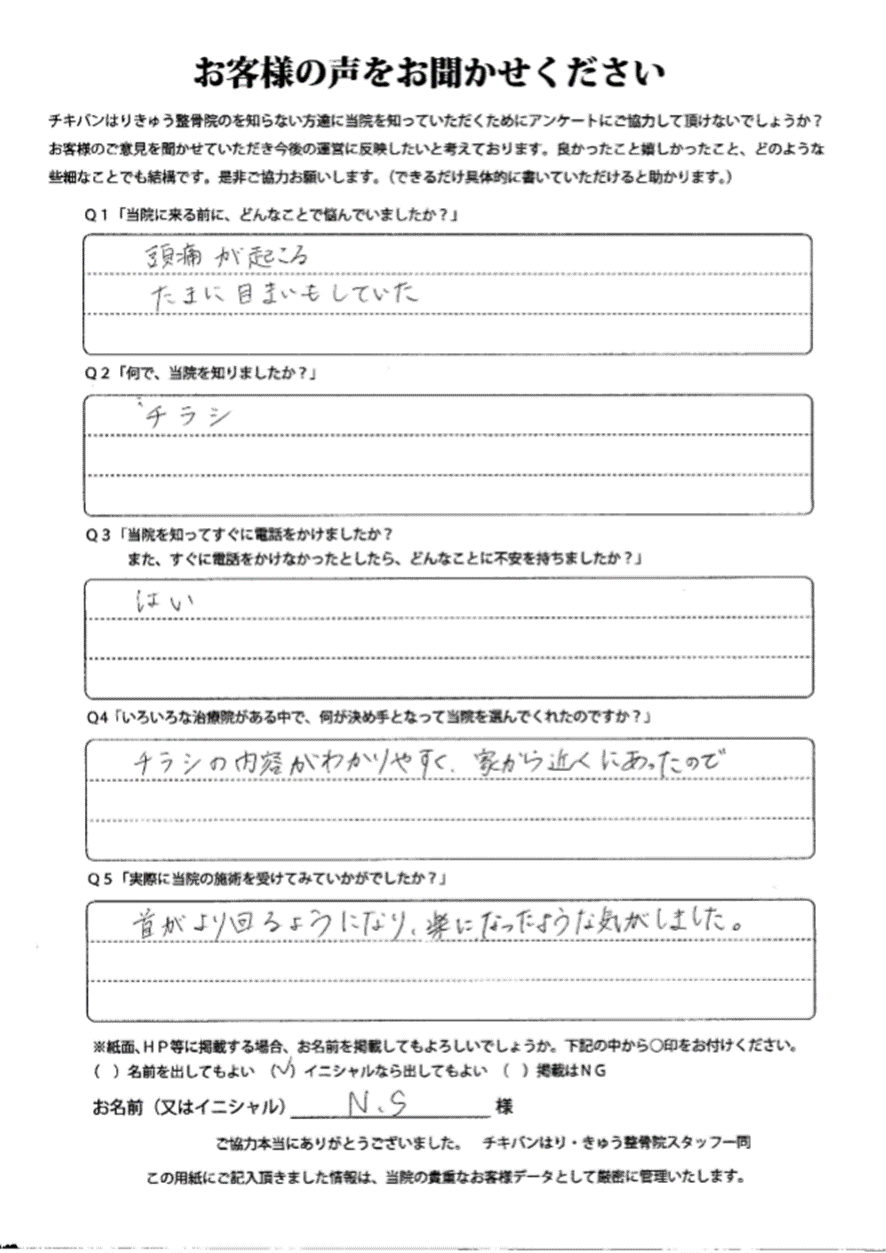 お客様の声をお聞かせください
チキバンはりきゅう整骨院のを知らない方達に当院を知っていただくためにアンケートにご協力して頂けないでしょうか？
お客様のご意見を聞かせていただき今後の運営に反映したいと考えております。良かったこと嬉しかったこと、どのような
些細なことでも結構です。是非ご協力お願いします。（できるだけ具体的に書いていただけると助かります。）
Q１「当院に来る前に、どんなことで悩んでいましたか？」
頭痛が起こる
たまに目まいもしていた
Q２「何で、当院を知りましたか？」
チラシ
Q３「当院を知ってすぐに電話をかけましたか？
また、すぐに電話をかけなかったとしたら、どんなことに不安を持ちましたか？」
はい
Q4「いろいろな治療院がある中で、何が決め手となって当院を選んでくれたのですか？」
チラシの内容がわかりやすく、家から近くにあったので
Q５「実際に当院の施術を受けてみていかがでしたか？」
首がより回るようになり、楽になったような気がしました。
※紙面、ＨＰ等に掲載する場合、お名前を掲載してもよろしいでしょうか。下記の中から○印をお付けください。
（　）名前を出してもよい　（✓）イニシャルなら出してもよい　（　）掲載はＮＧ
お名前（又はイニシャル） N.S 様
ご協力本当にありがとうございました。　チキバンはり・きゅう整骨院スタッフ一同
この用紙にご記入頂きました情報は、当院の貴重なお客様データとして厳密に管理いたします。